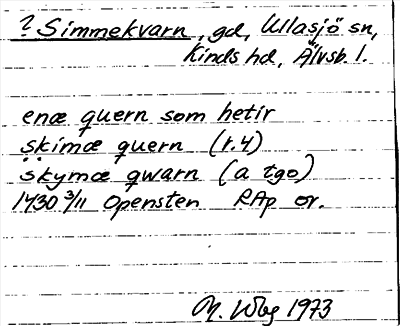 ? Simmekvarn, gd, Ullasjö sn,
Kinds hd, Älvsb. l.
enæ quern som hetir
skimæ quern (r.4)
skymæ qwarn (a tgo)
1430 3/11 Opensten RAp or.
1973